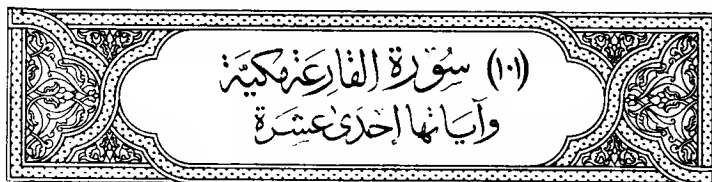 (١٠١) سُورَة القَارِعَة مكيَّة
وآيَاتها إحْدَى عَشَرَة